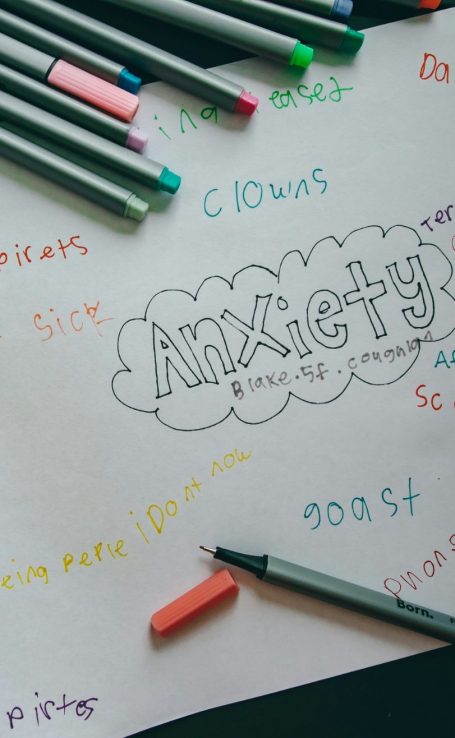 Da
ing easet
clowns
Ter
pirets
sick
Anxiety
Blake.5f.coughlan
Af
Sc
eing peple i Dont now
goast
phons
Born.
pirtes